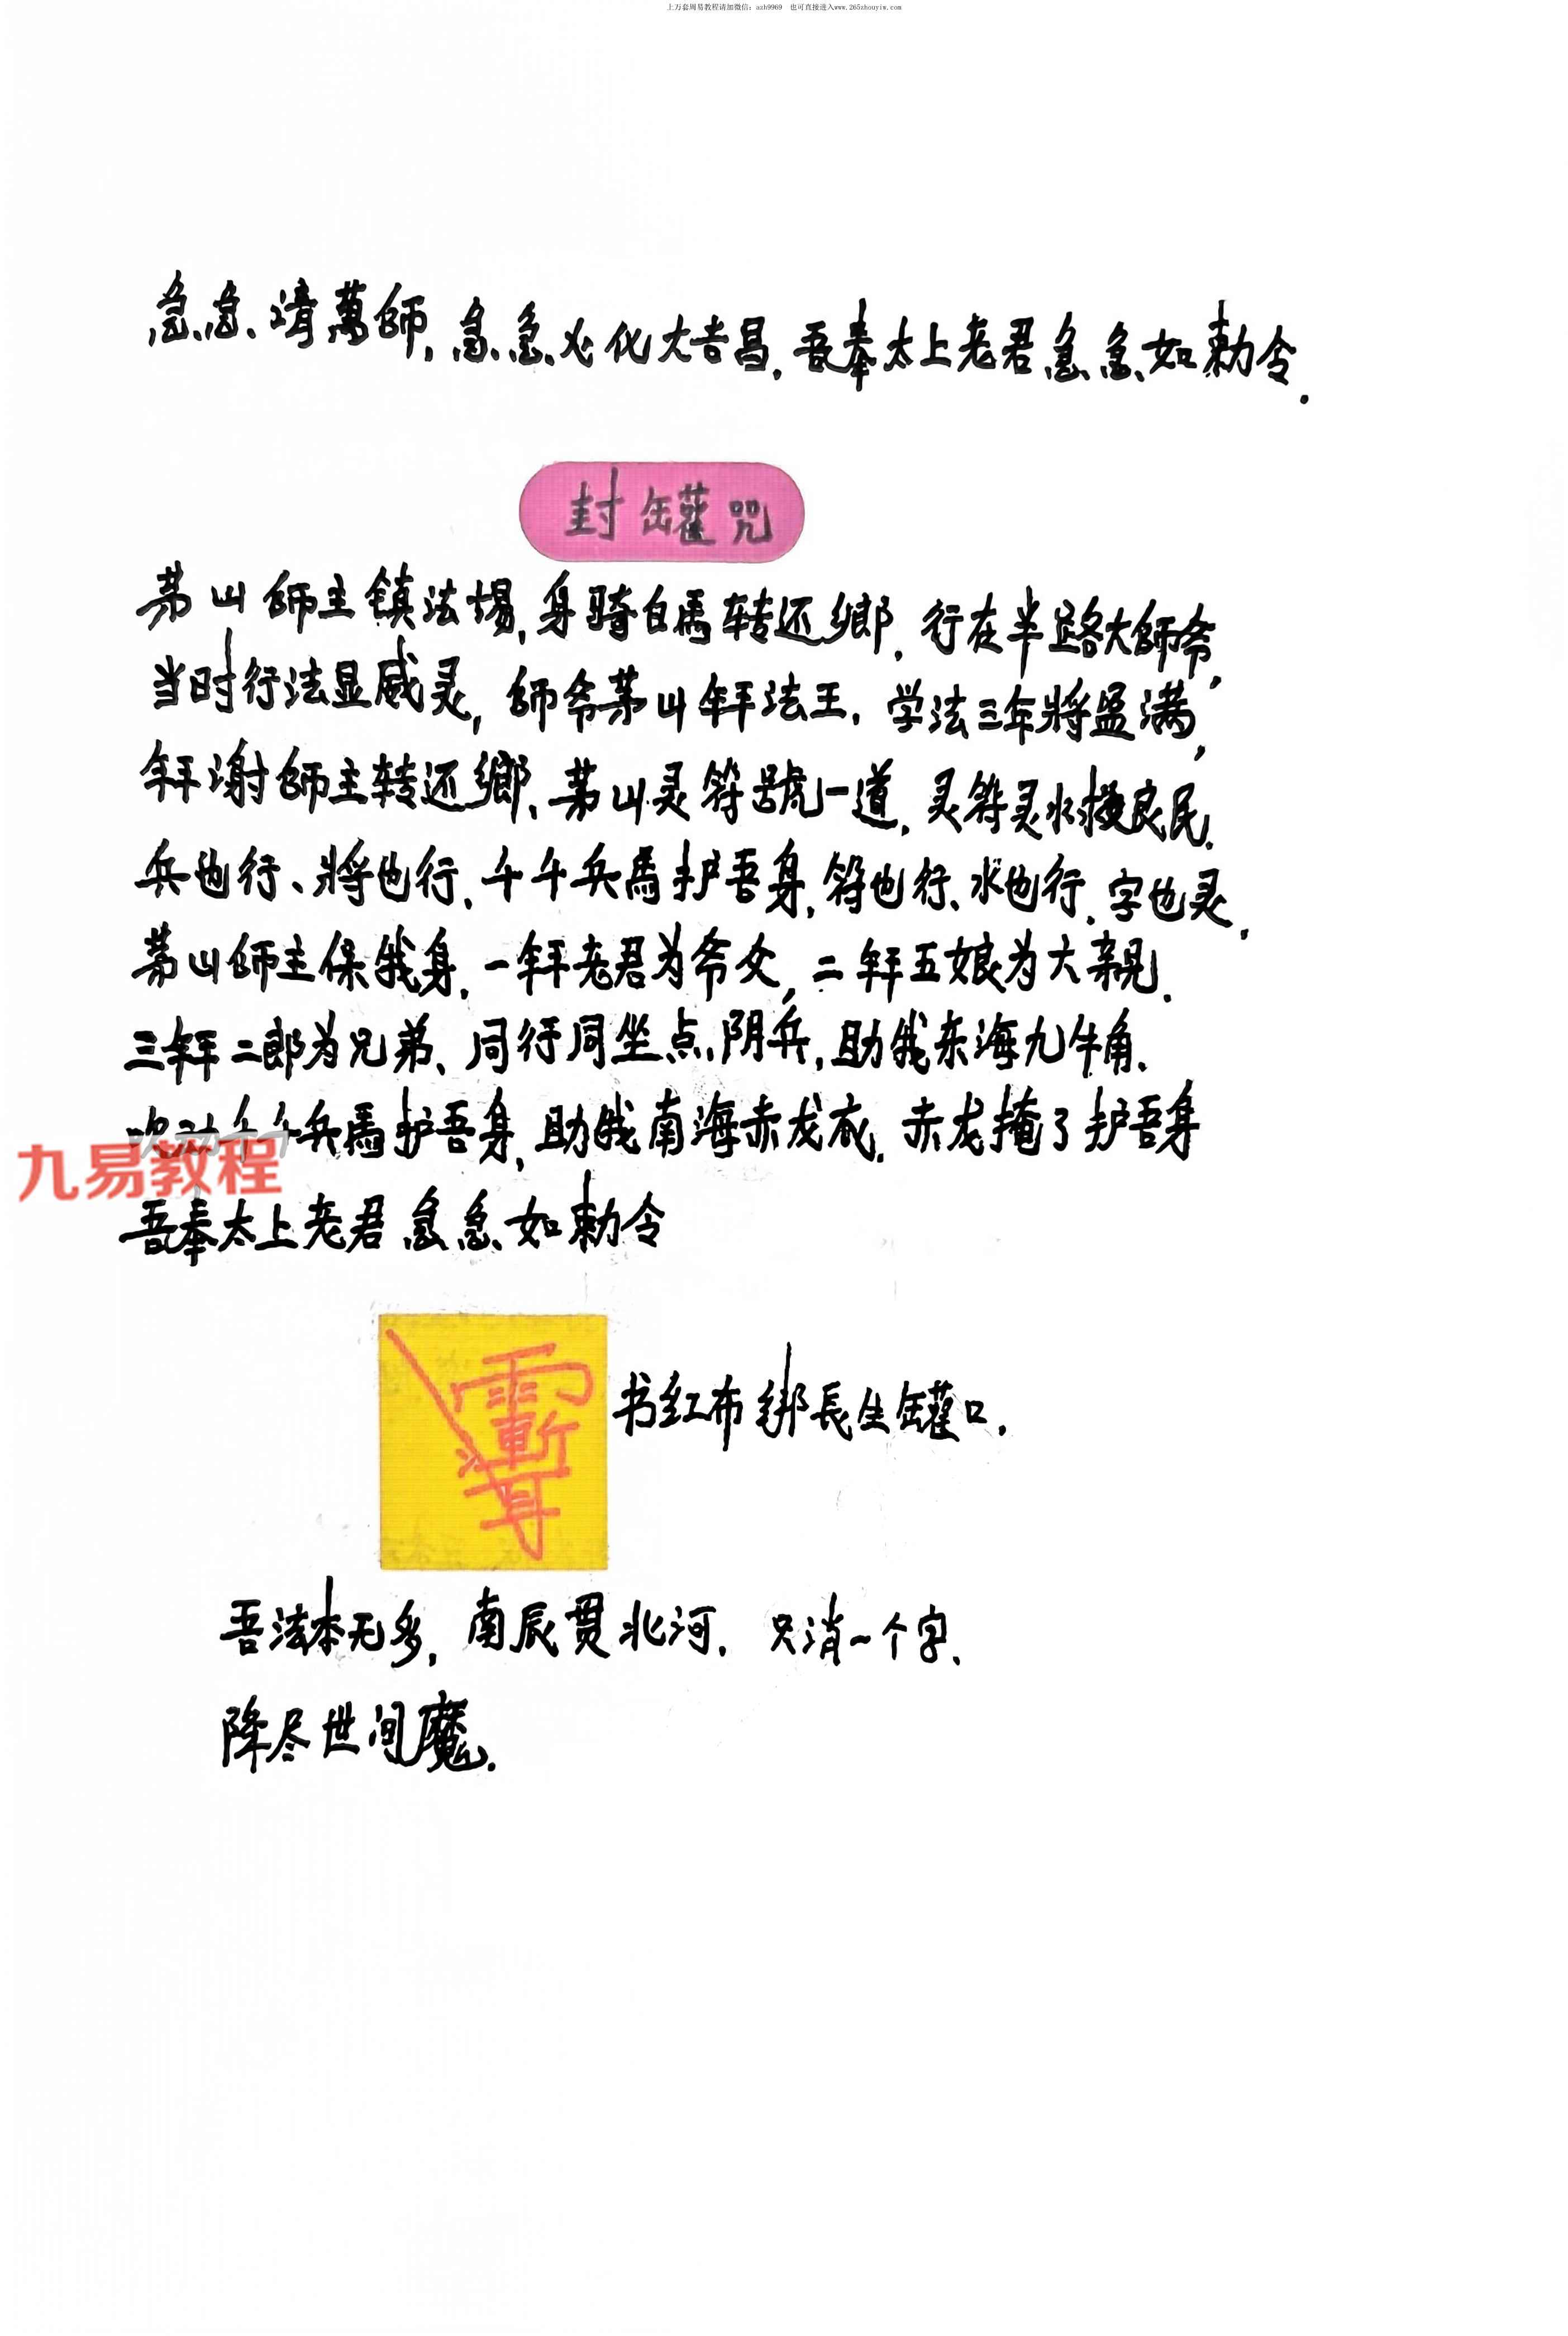 上万套周易教程请加微信：azh9969 也可直接进入www.265zhouyiw.com
急急请萬師，急急火化大吉昌，吾奉太上老君急急如勅令.
封罐咒
茅山師主镇法場，身骑白馬转还鄉，行在半路大師爷，
当时行法显威灵，師爷茅山拜法王，学法三年將盈满，
拜謝師主转还鄉、茅山灵符號一道，灵符灵水授良民.
兵也行、將也行，千千兵馬护吾身，符也行、水也行，字也灵，
茅山師主保我身，一拜老君为爷父，二拜五娘为大親.
三拜二郎为兄弟、同行同坐点阴兵，助我东海九牛角.
吹动千千兵馬护吾身，助我南海赤龙衣，赤龙掩了护吾身
九易教程
吾奉太上老君急急如勅令
书红布绑長生罐口.
吾法本无多，南辰贯北河，只消一个字、
降尽世间魔.